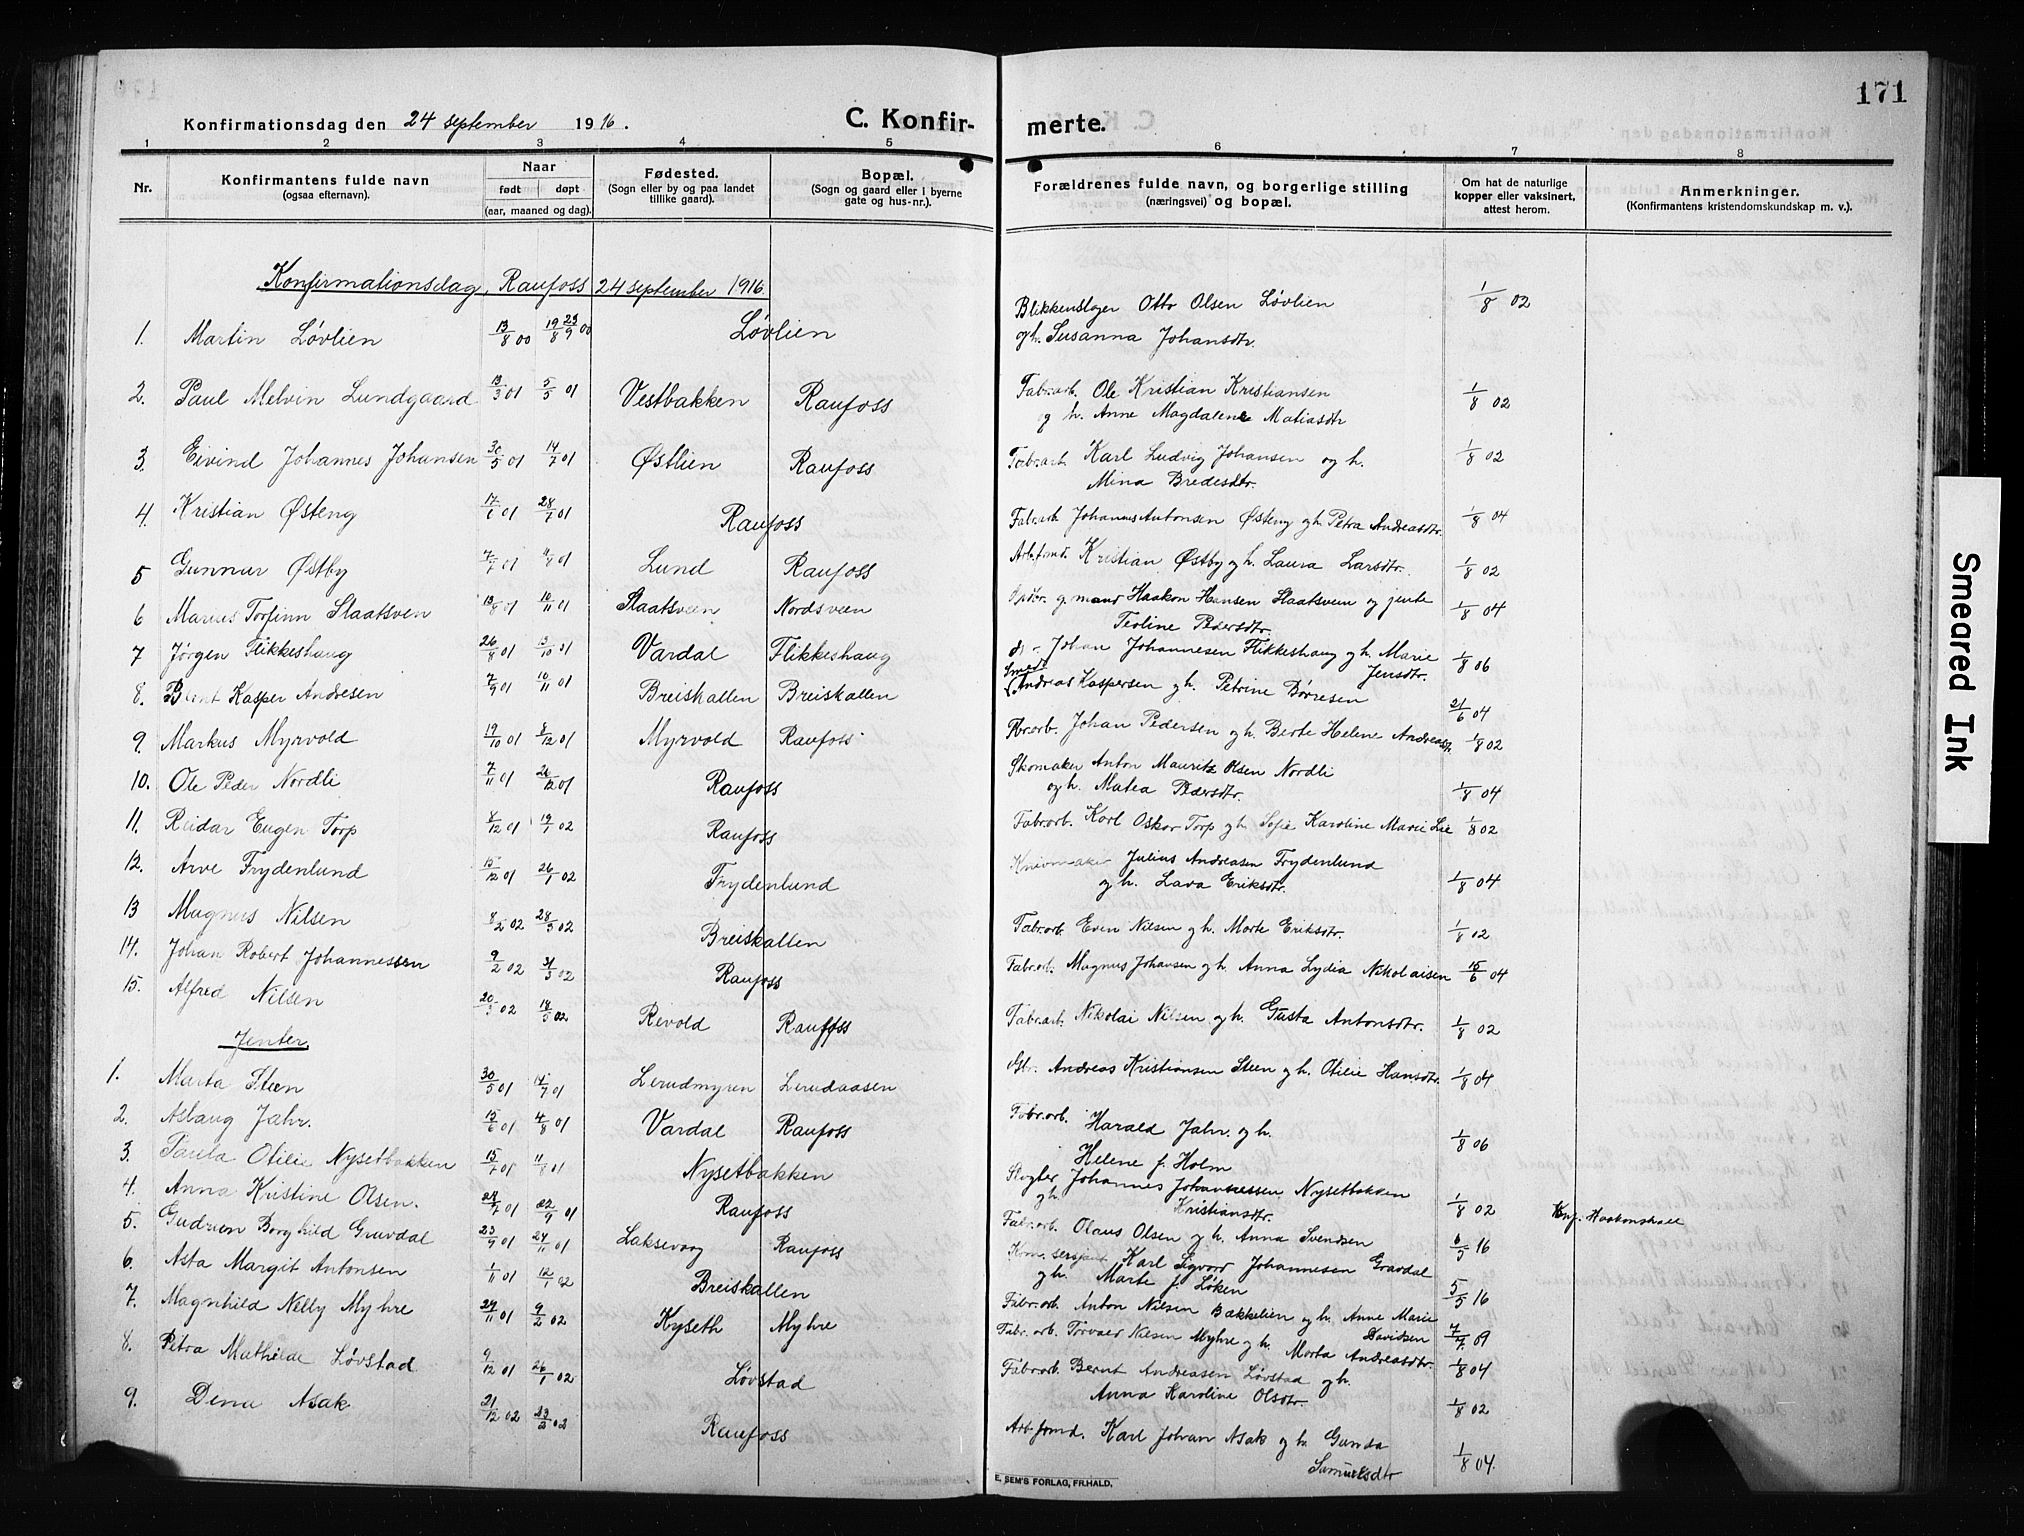 171
Konfirmationsdag den 24 september 1916.
C. Konfirmerte.
1 2 3 4 5 6 7 8
Nr.
Konfirmantens fulde navn
(ogsaa efternavn).
Naar
født døpt
(aar, maaned og dag).
Fødested.
(Sogn eller by og paa landet
tillike gaard).
Bopæl.
(Sogn og gaard eller i byerne
gate og hus-nr.).
Forældrenes fulde navn, og borgerlige stilling
(næringsvei) og bopæl.
Om hat de naturlige
kopper eller vaksinert,
attest herom.
Anmerkninger.
(Konfirmantens kristendomskundskap m. v.).
Konfirmationsdag, Raufoss 24 september 1916
1. Martin Løvlien 13/8 00 23/9 00 Løvlien Blikkenslager Otto Olsen Løvlien 1/8 02
og h. Susanna Johansdtr.
2. Paul Melvin Lundgaard 13/3 01 5/5 01 Vestbakken Raufoss Fabr.arb. Ole Kristian Kristiansen 1/8 02
g h. Anne Magdalene Matiasdtr
3. Eivind Johannes Johansen 30/5 01 14/7 01 Østlien Raufoss Fabr.arb. Karl Ludvig Johansen og h. 1/8 02
Mina Bredesdtr.
4. Kristian Østeng 28/7 01 Raufoss Fabr.arb. Johannes Antonsen Østeng g h. Petra Andreasdtr. 1/8 04
5 Gunnar Østby 7/7 01 Lund Raufoss Arb.fmd. Kristian Østby g h. Laura Larsdtr. 1/8 02
6 Marius Torfinn Slaatsveen 13/8 01 10/11 01 Slaatsveen Nordsveen g. mand Haakon Hansen Slaatsveen og jente 1/8 04
Teoline Pedersdtr.
7 Jørgen Flikkeshaug 26/8 01 13/10 01 Vardal Flikkeshaug Johan Johannesen Flikkeshaug g h. Marie 1/8 06
Jensdtr.
8. Kasper Andresen 7/9 01 10/11 01 Breiskallen Breiskallen Smed Andreas Kaspersen g h. Petrine Børresen 21/6 04
9. Markus Myrvold 19/10 01 8/12 01 Myrvold Raufoss Fbr.arb. Johan Pedersen g h. Berte Helene Andreasd. 1/8 02
10. Ole Peder Nordli 7/11 01 26/12 01 Raufoss Skomaker Anton Mauritz Olsen Nordli
og h. Matea Pedersdtr. 1/8 04
11. Reidar Eugen Torp 8/12 01 19/1 02 Raufoss Fabr.arb. Karl Oskar Torp g h. Sofie Karoline Marie Lie 1/8 02
12. Arve Frydenlund 15/12 01 26/1 02 Frydenlund Knivmaker Julius Andreasen Frydenlund
g h. Lava Eriksdtr. 1/8 04
13 Magnus Nilsen 8/2 02 28/3 02 Breiskallen Fabr.arb. Even Nilsen g h. Marte Eriksdtr. 1/8 02
14. Johan Robert Johannessen 9/2 02 31/3 02 Raufoss Fabr.arb. Magnus Johansen g h. Anna Lydia Nikolaisen 15/6 04
15. Alfred Nilsen 20/3 02 18/5 02 Revold Raufoss Fabr.arb. Nikolai Nilsen g h. Gusta Antonsdtr. 1/8 02
Jenter
1. Marta Steen 30/5 01 14/7 01 Lerudmyren Lerudaasen Gbr. Andreas Kristiansen Steen g h. Otilie Hansdtr. 1/8 04
2. Aslaug Jahr. 15/6 01 4/8 01 Vardal Raufoss Fabr.arb. Harald Jahr. g h. 1/8 06
Helene f. Holm
3. Paula Otilie Nysetbakken 15/7 01 11/8 01 Nysetbakken Slagter Johannes Johannessen Nysetbakken
g h. Kristiansdtr. 1/8 02
4. Anna Kristine Olsen. 27/7 01 22/9 01 Raufoss Fabr.arb. Olaus Olsen g h. Anna Svendsen 6/5 16
5. Gudrun Borghild Gravdal 23/9 01 24/11 01 Laksevaag Raufoss sersjant Karl Sigvard Johannesen Gravdal
g h. Marte f. Løken 5/5 16
6. Asta Margit Antonsen 1/11 01 12/1 02 Breiskallen Fabr.arb. Anton Nilsen Bækkelien g h. Anne Marie
Davidsen 7/7 09
7. Magnhild Nelly Myhre 24/11 01 9/2 02 Kyseth Myhre Fabr.arb. Torvald Nilsen Myhre g h. Marta Andreasdtr. 1/8 04
8. Petra Mathilde Løvstad 9/12 01 26/1 02 Løvstad Fabr.arb. Bernt Andreasen Løvstad g h.
Anna Karoline Olsdtr. 1/8 02
9. Dena Asak 21/12 02 23/2 02 Raufoss Arb.formd. Karl Johan Asak g h Gunda
Samuelsdtr 1/8 04.
E. SEM'S FORLAG, FR.HALD.
Smeared Ink